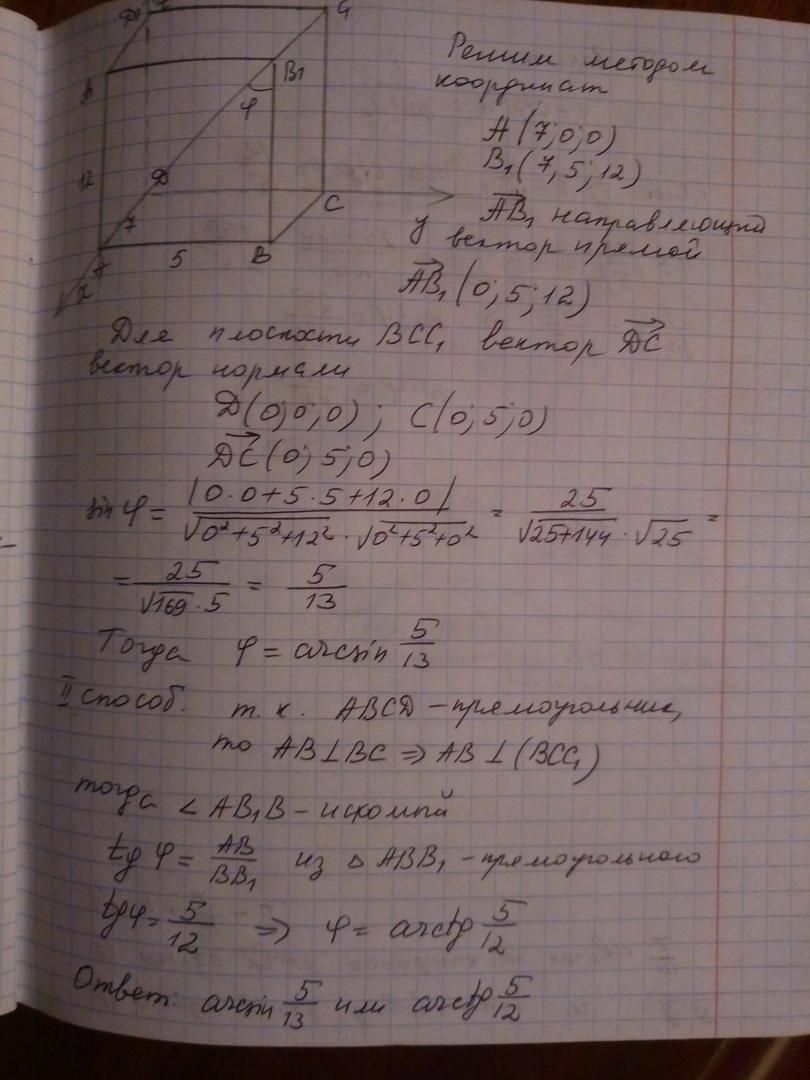 D1
C1
B1
φ
12
D
7
C
y
5
B
x
Решим методом
координат
A (7;0;0)
B₁ (7, 5; 12)
AB₁ направляющий
вектор прямой
AB₁ (0; 5; 12)
Для плоскости BCC₁ вектор DC
вектор нормали
D(0;0;0) ; C(0;5;0)
DC (0; 5; 0)
sin φ = |0·0+5·5+12·0| / √0²+5²+12² · √0²+5²+0² = 25 / √25+144 · √25 =
= 25 / √169 · 5 = 5/13
Тогда φ = arcsin 5/13
II способ. т.к. ABCD – прямоугольник,
то AB⊥BC ⇒ AB ⊥ (BCC₁)
тогда ∠ AB₁B – искомый
tg φ = AB/BB₁ из △ ABB₁ – прямоугольного
tgφ = 5/12 ⇒ φ = arctg 5/12
Ответ: arcsin 5/13 или arctg 5/12